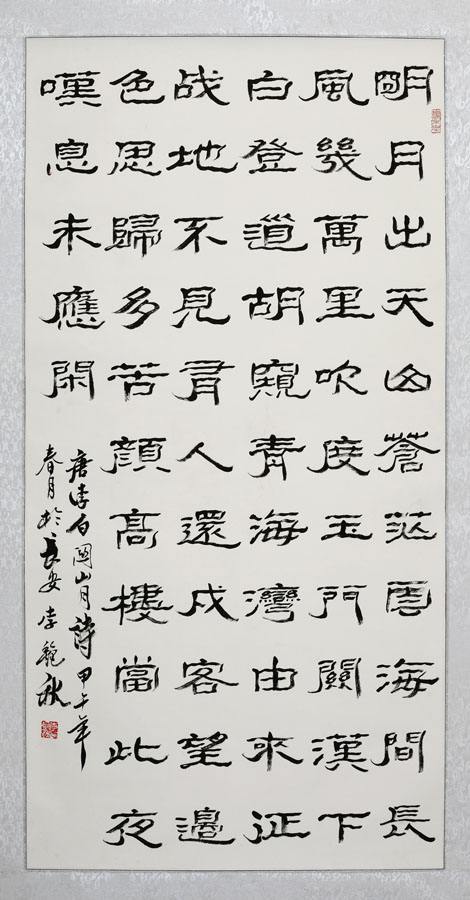 明月出天山蒼茫雲海間長
風幾萬里吹度玉門關漢下
白登道胡窺青海灣由來征
战地不見有人還戍客望邊
色思歸多苦顏高樓當此夜
嘆息未應閑
唐李白関山月詩甲午年
春月於長安李秋